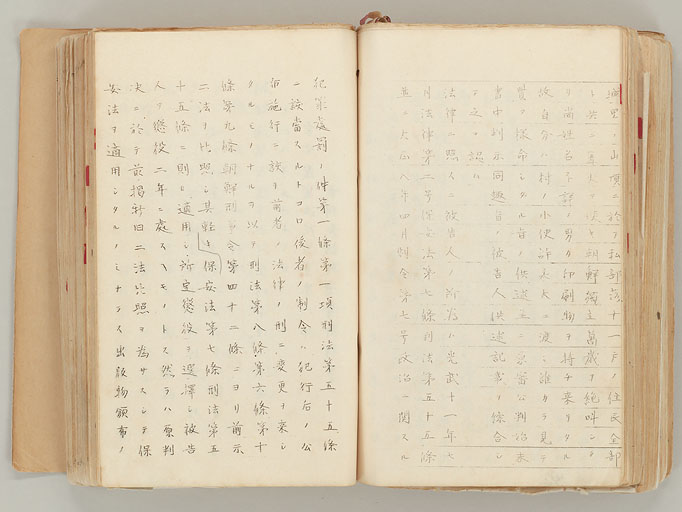 興里ノ山頂ニ於テ私部落十一戸ノ住民全部
ト共ニ夏火ヲ使ヒ朝鮮獨立萬歳ヲ絶叫シ
リ尚姓名不詳ノ男カ印刷物ヲ持チ来リタル
故自分ハ村ノ小使許夫ニ渡シ誰カラ見テ
旨ノ供述
書中判示同趣旨ノ被告人供述記載ヲ綜合シ
テ之ヲ認ム
法律ニ照スニ被告人ノ所為ハ光武十一年七
月法律第二号保安法第七條刑法第五十五條
並ニ大正八年四月制令第七号政治ニ関スル
犯罪處罰ノ件第一條第一項刑法第五十五條
ニ該當スルトコロ後者ノ制令ハ犯行后ノ公
布施行ニ
クルモノナルヲ以テ刑法第八條第六條第十
條第九條朝鮮刑事令第四十二條ニヨリ前示
二法ヲ比照シ其輕キ保安法第七條刑法第五
十五條ニ則リ適用シ所定懲役ヲ選擇シ被告
人ヲ懲役二年ニ處スヘキモノトス然ラハ原判
決ニ於テ前掲新旧二法比照ヲ為サスシテ保
安法ヲ適用シタルノミナラス出版物頒布ノ